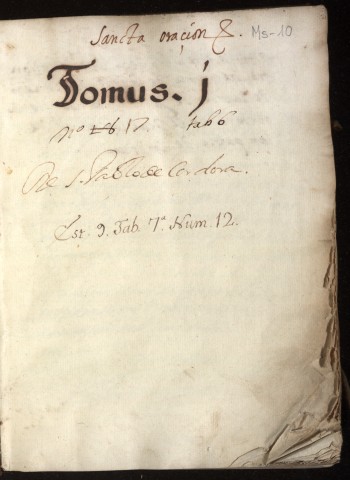 Sancta oración &. Ms-10
Tomus. j
nº 17 tab 6
De S. Pablo de Cordova.
Est. 9. Tab. 7ª. Num. 12.